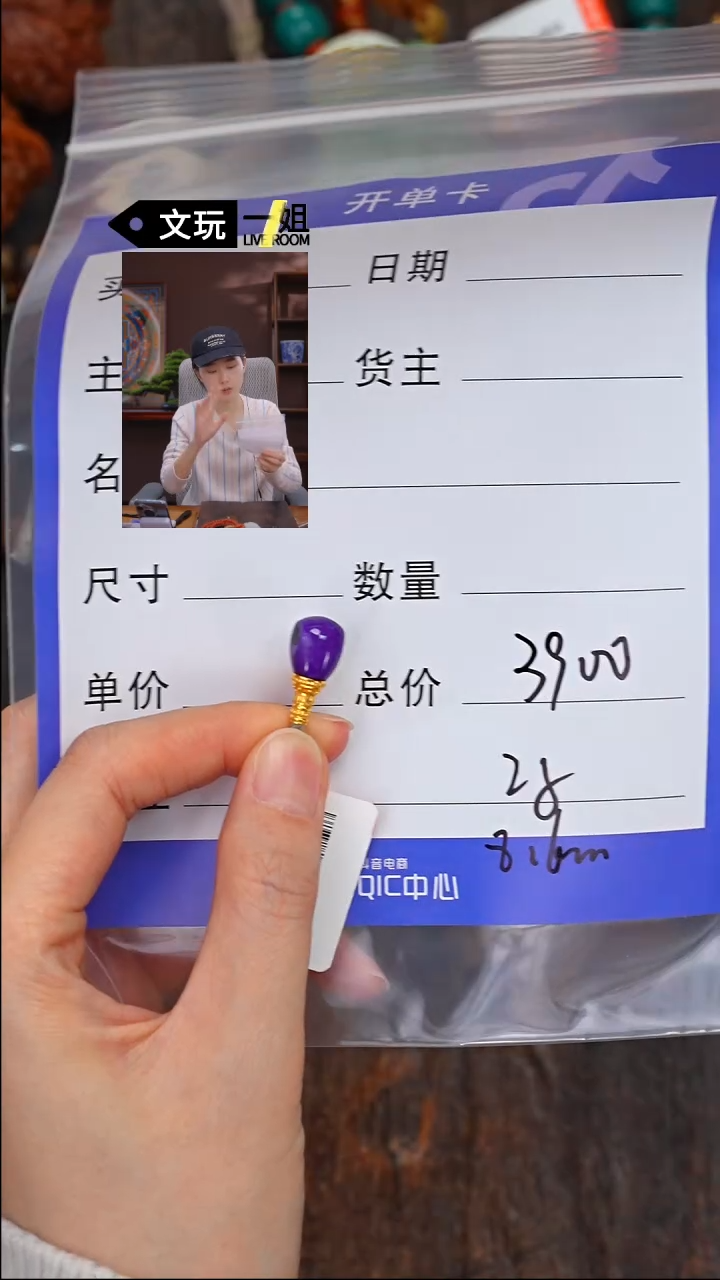 开单卡
文玩一姐
LIVE ROOM
买 日期
主 货主
名
尺寸 数量
单价 总价 3900
2g
抖音电商
QIC中心